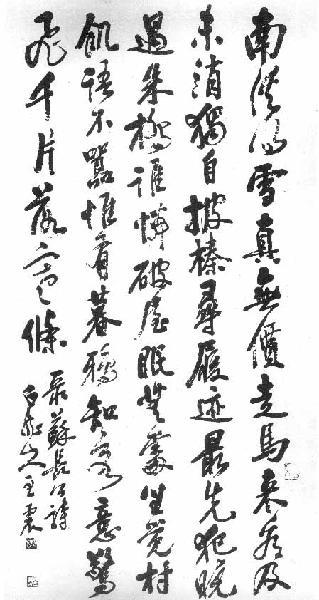 南溪得雪真無價走馬來看及
未消獨自披榛尋履迹最先犯曉
過朱橋誰憐破屋眠無處坐覺村
飢語不囂惟有暮鴉知客意驚
飛千片落寒條
录蘇長公詩
白龍山人王震